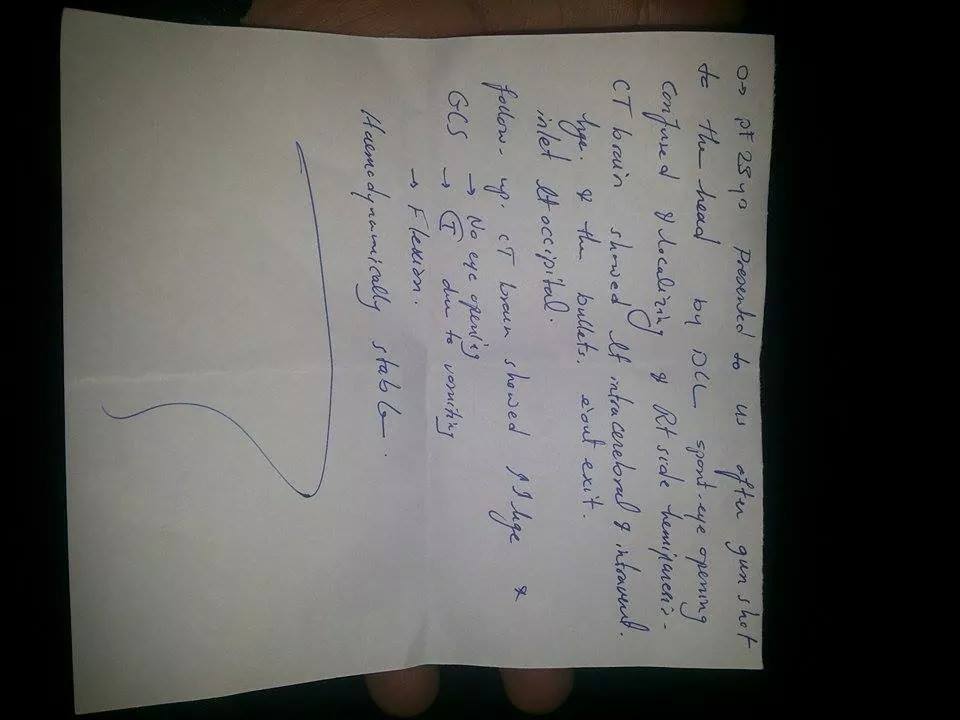 ♂ pt 25 yo presented to us after gun shot
to the head by DCL spont. eye opening
Confused & localizing & Rt side hemiparesis.
CT brain showed lt intracerebral & intravent.
hge. & the bullets. s̄out exit.
inlet lt occipital.
follow-up. CT brain showed ↑↑ hge &
GCS → No eye opening
→ T due to vomiting
→ Flexion.
Haemodynamically stable.